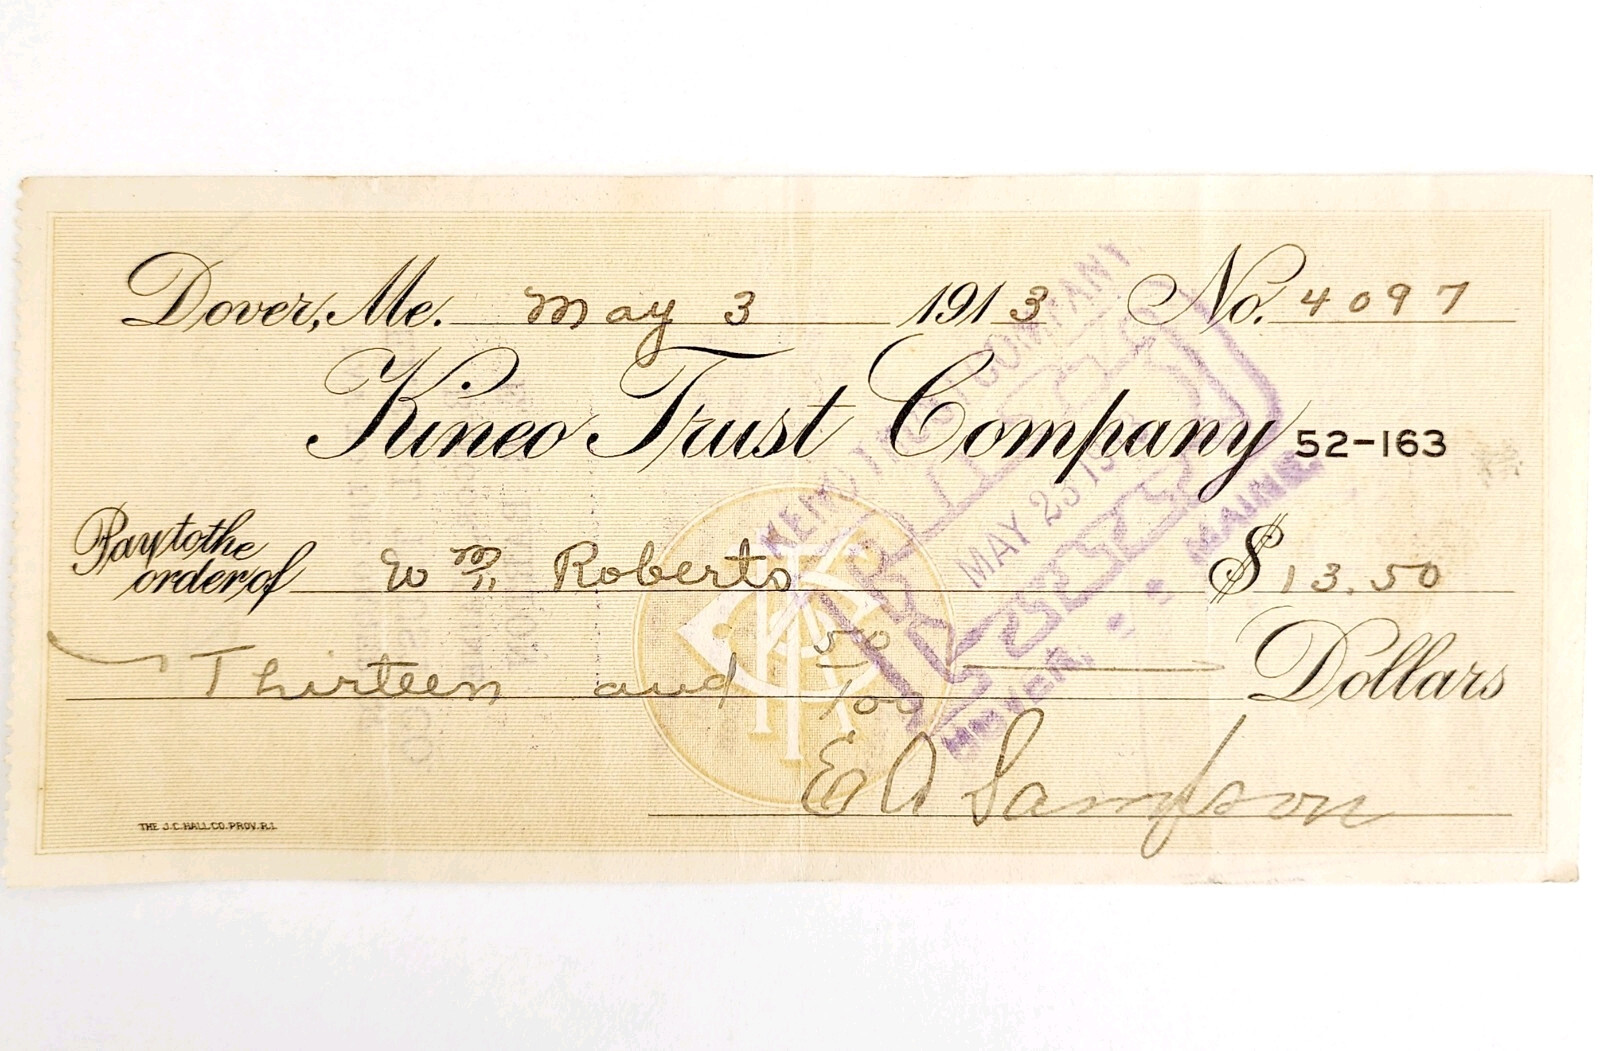 Dover, Me. May 3 1913 No. 4097
Kineo Trust Company 52-163
Pay to the
order of Wm Roberts $13.50
Thirteen and 50/100 Dollars
E A Sampson
THE J.C. HALL CO. PROV. R.I.
TRUST COMPANY
PAID
MAY 23 19
DOVER, MAINE